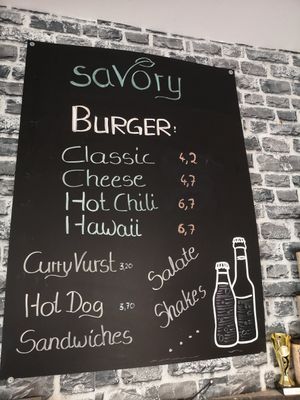 savory
BURGER:
Classic 4,2
Cheese 4,7
Hot Chili 6,7
Hawaii 6,7
CurryVurst 3,20
Salate
Hol Dog 3,70
Shakes
Sandwiches
....